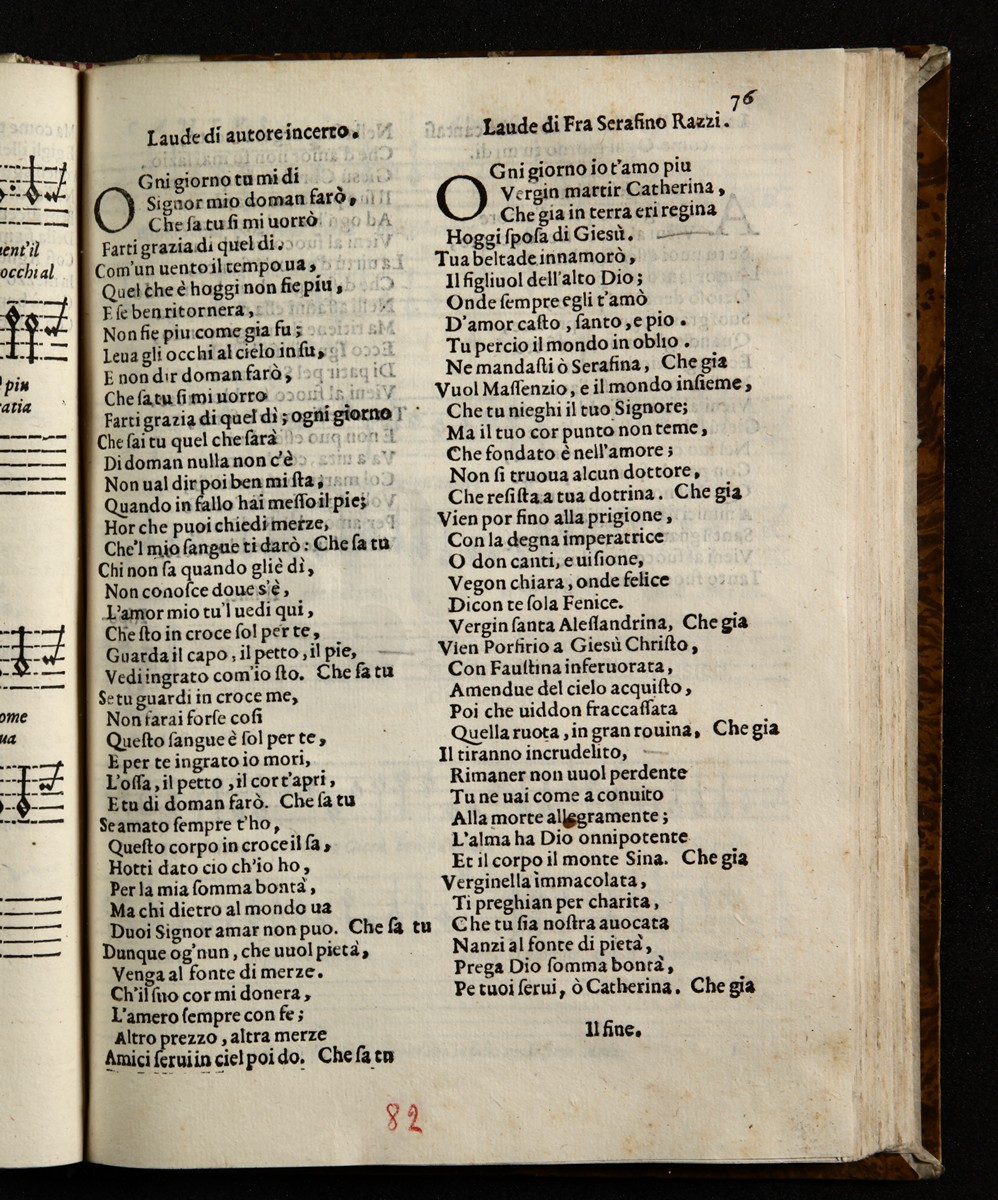 76
Laude di autore incerto.
OGni giorno tu mi di
Signor mio doman farò,
Che ſa tu ſi mi uorrò
Farti grazia di quel di.
Com'un uento il tempo ua,
Quel che è hoggi non fie piu,
E ſe ben ritornera,
Non fie piu come gia fu;
Leua gli occhi al cielo in ſu,
E non dir doman farò,
Che ſa tu ſi mi uorro
Farti grazia di quel dì; ogni giorno
Che ſai tu quel che ſarà
Di doman nulla non c'è
Non ual dir poi ben mi ſta,
Quando in fallo hai meſſo il pie;
Hor che puoi chiedi merze,
Che'l mio ſangue ti darò: Che ſa tu
Chi non ſa quando gliè dì,
Non conoſce doue s'è,
L'amor mio tu'l uedi qui,
Che ſto in croce ſol per te,
Guarda il capo, il petto, il pie,
Vedi ingrato com'io ſto. Che ſa tu
Se tu guardi in croce me,
Non farai forſe coſi
Queſto ſangue è ſol per te,
E per te ingrato io mori,
L'oſſa, il petto, il cor t'apri,
E tu di doman farò. Che ſa tu
Se amato ſempre t'ho,
Queſto corpo in croce il ſa,
Hotti dato cio ch'io ho,
Per la mia ſomma bontà,
Ma chi dietro al mondo ua
Duoi Signor amar non puo. Che ſa tu
Dunque og'nun, che uuol pietà,
Venga al fonte di merze.
Ch'il ſuo cor mi donera,
L'amero ſempre con fe;
Altro prezzo, altra merze
Amici ſerui in ciel poi do. Che ſa tu
Laude di Fra Serafino Razzi.
OGni giorno io t'amo piu
Vergin martir Catherina,
Che gia in terra eri regina
Hoggi ſpoſa di Gieſù.
Tua beltade innamorò,
Il figliuol dell'alto Dio;
Onde ſempre egli t'amò
D'amor caſto, ſanto, e pio.
Tu percio il mondo in oblio.
Ne mandaſti ò Serafina, Che gia
Vuol Maſſenzio, e il mondo inſieme,
Che tu nieghi il tuo Signore;
Ma il tuo cor punto non teme,
Che fondato è nell'amore;
Non ſi truoua alcun dottore,
Che reſiſta a tua dotrina. Che gia
Vien por fino alla prigione,
Con la degna imperatrice
O don canti, e uiſione,
Vegon chiara, onde felice
Dicon te ſola Fenice.
Vergin ſanta Aleſſandrina, Che gia
Vien Porfirio a Gieſù Chriſto,
Con Fauſtina inferuorata,
Amendue del cielo acquiſto,
Poi che uiddon fraccaſſata
Quella ruota, in gran rouina, Che gia
Il tiranno incrudelito,
Rimaner non uuol perdente
Tu ne uai come a conuito
Alla morte allegramente;
L'alma ha Dio onnipotente
Et il corpo il monte Sina. Che gia
Verginella immacolata,
Ti preghian per charita,
Che tu ſia noſtra auocata
Nanzi al fonte di pietà,
Prega Dio ſomma bontà,
Pe tuoi ſerui, ò Catherina. Che gia
Il fine.
82